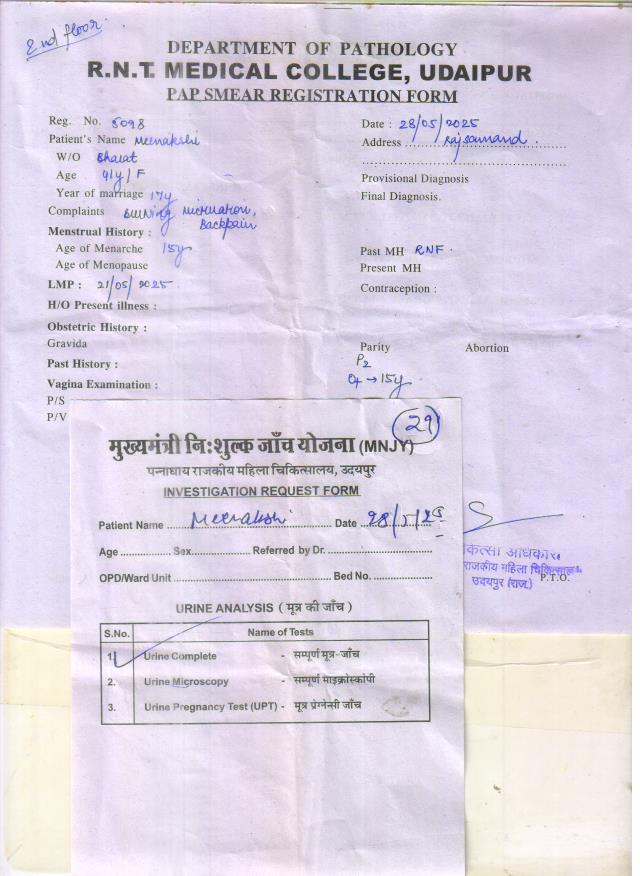 2nd floor
DEPARTMENT OF PATHOLOGY
R.N.T. MEDICAL COLLEGE, UDAIPUR
PAP SMEAR REGISTRATION FORM
Reg. No. 5098
Date : 28/05/2025
Patient's Name Meenakshi
Address Rajsamand
W/O Bharat
Age 41y/F
Provisional Diagnosis
Year of marriage 17y
Final Diagnosis.
Complaints Burning micturation,
Backpain
Menstrual History :
Age of Menarche 15y
Past MH RNF
Age of Menopause
Present MH
LMP : 21/05/2025
Contraception :
H/O Present illness :
Obstetric History :
Gravida
Parity
Abortion
P2
Past History :
→ 15y
Vagina Examination :
P/S
P/V
29
मुख्यमंत्री निःशुल्क जाँच योजना (MNJY)
पन्नाधाय राजकीय महिला चिकित्सालय, उदयपुर
INVESTIGATION REQUEST FORM
Patient Name Meenakshi Date 28/5/25
Age Sex Referred by Dr.
OPD/Ward Unit Bed No.
कित्सा अधिकारी
राजकीय महिला चिकित्सालय
उदयपुर (राज.)
P.T.O.
URINE ANALYSIS ( मूत्र की जाँच )
S.No. Name of Tests
1. Urine Complete - सम्पूर्ण मूत्र-जाँच
2. Urine Microscopy - सम्पूर्ण माइक्रोस्कोपी
3. Urine Pregnancy Test (UPT) - मूत्र प्रेग्नेन्सी जाँच